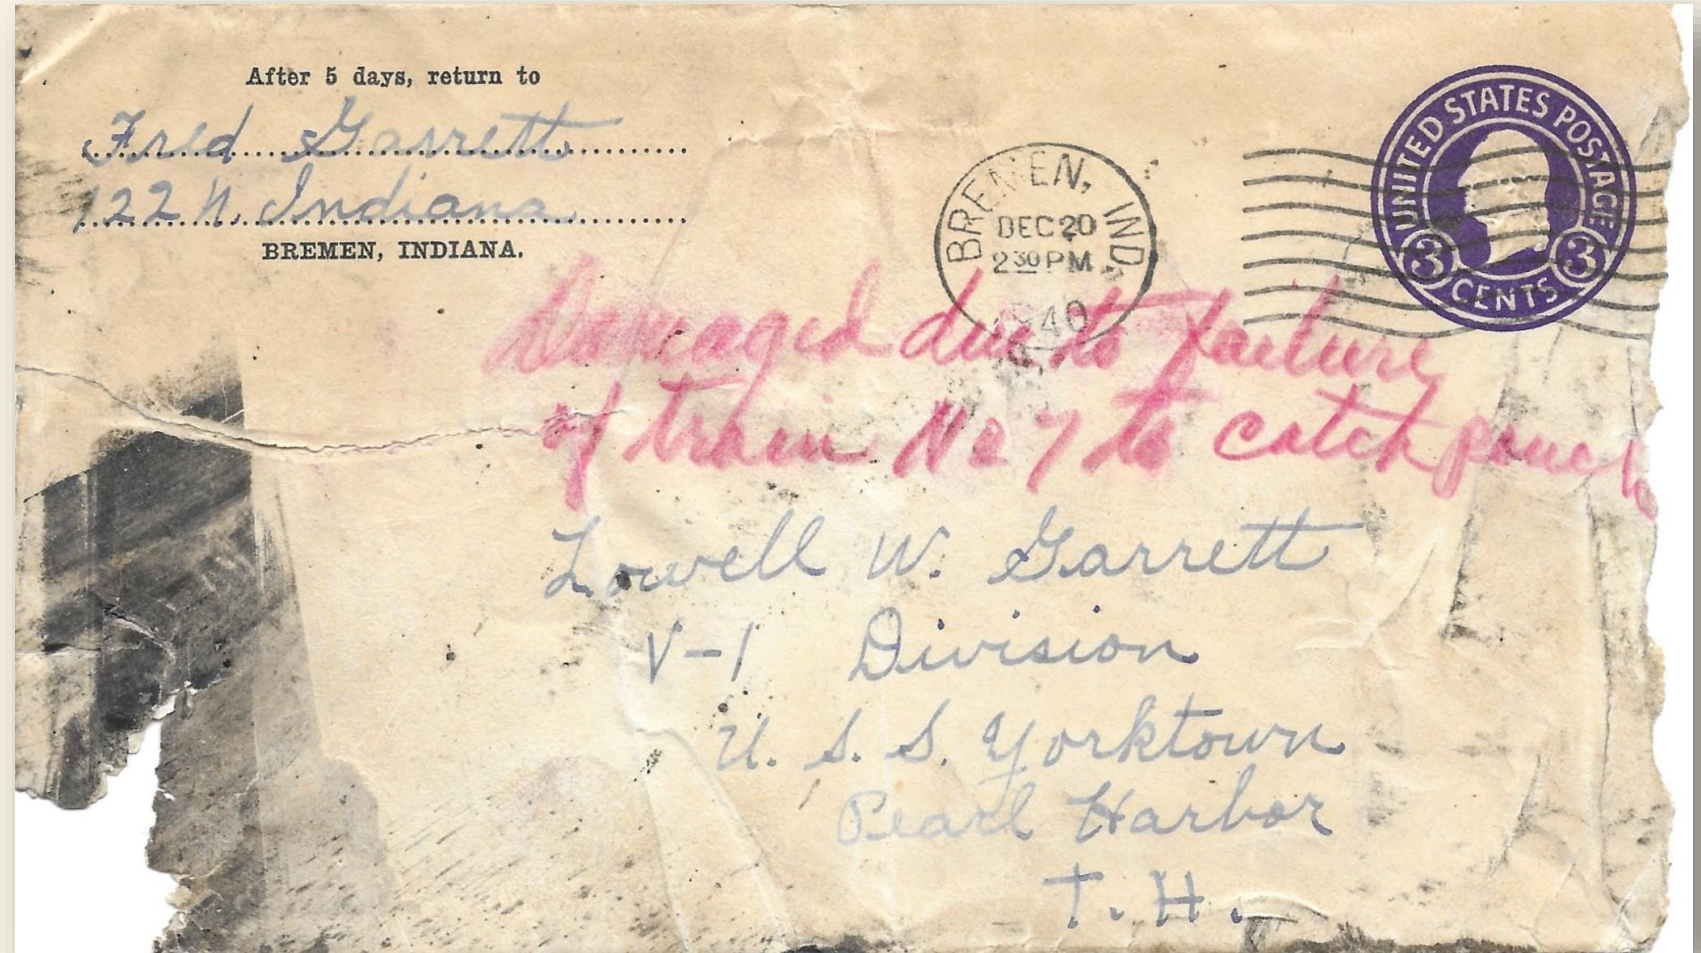 After 5 days, return to
Fred Garrett
122 N. Indiana
BREMEN, INDIANA.
BREMEN, IND.
DEC 20
2 30 PM
1940
UNITED STATES POSTAGE
3 3
CENTS
Damaged due to failure
of train No 7 to catch pouch
Lowell W. Garrett
V-1 Division
U. S. S. Yorktown
Pearl Harbor
T. H.